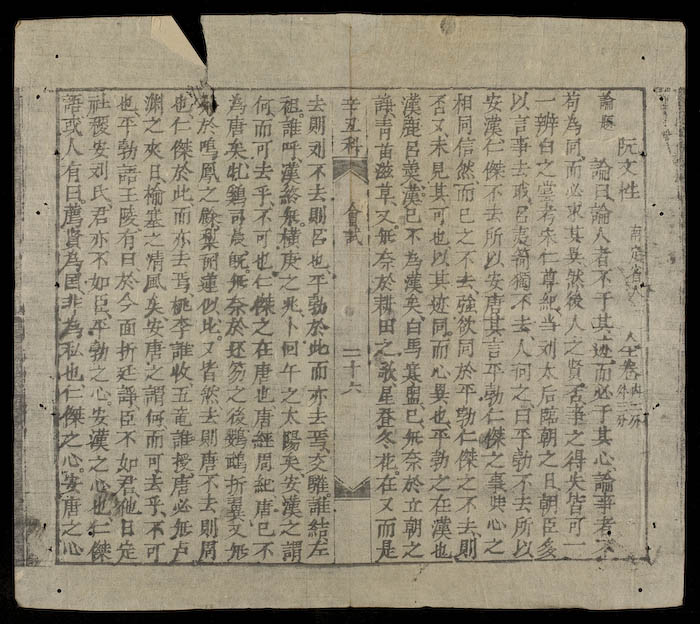 論題
阮文性 南定省 人 全卷內二分 外二分
論曰論人者不于其迹而必于其心論事者不
苟為同而必求其異然後人之賢否事之得失皆可一
一辨白之嘗考宋仁尊紀當刘太后臨朝之日朝臣多
以言事去或呂夷簡獨不去人问之曰平勃不去所以
安漢仁傑不去所以安唐其言平勃仁傑之事與心之
相同信然而已之不去強欲同於平勃仁傑之不去則
否又未見其可也以其迹同而心異也平勃之在漢也
漢鹿呂羹漢已不為漢矣白馬寒盟已無奈於立朝之
諍青苗滋草又無奈於耕田之歌星昼冬花在又而是
辛丑科 會試 二十六
去則刘不去則呂也平勃於此而亦去焉交驩誰結左
祖誰呼漢終無橫庚之兆卜何午之太陽矣安漢之謂
何而可去乎不可也仁傑之在唐也唐經周紀唐已不
為唐矣牝鷄司晨既無奈於还笏之後鸚鵡折翼又無
於鳴鳳之 朝蓮似比又皆然去則唐不去則周
也仁傑於此而亦去焉桃李誰收五竜誰授唐必無卢
渊之夾日榆塞之清風矣安唐之謂何而可去乎不可
也平勃語王陵有曰於今面折廷諍臣不如君他日定
社稷安刘氏君亦不如臣平勃之心安漢之心也仁傑
語或人有曰薦賢為国非為私也仁傑之心安唐之心